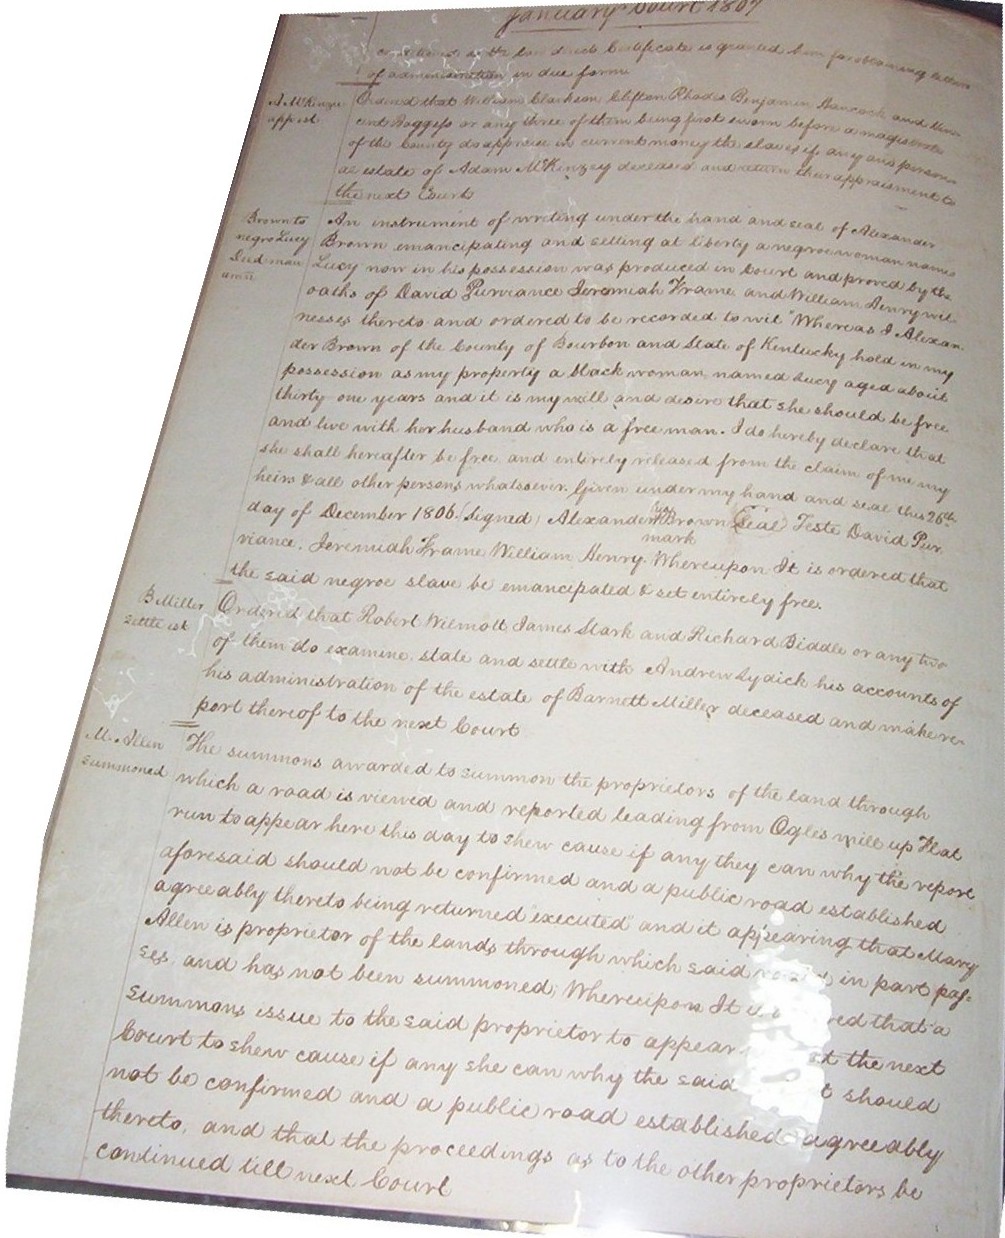 January Court 1807
conditioned as the law directs Certificate is granted him for obtaining letters
of administration in due form
A. McKinzie
app est
Ordered that William Clarkson, Clifton Rhodes Benjamin Hancock and Vin-
cent Boggess or any three of them being first sworn before a magistrate
of the County do appraise in current money the slaves if any and person-
al estate of Adam McKinzey deceased and return their appraisment to
the next Court
Brown to
negro Lucy
Deed man
umn
An instrument of writing under the hand and seal of Alexander
Brown emancipating and setting at liberty a negroe woman name
Lucy now in his possession was produced in Court and proved by the
oaths of David Purviance Jeremiah Frame and William Henry wit
nesses thereto and ordered to be recorded to wit "Whereas I Alexan
der Brown of the County of Bourbon and State of Kentucky hold in my
possession as my property a black woman named Lucy aged about
thirty one years and it is my will and desire that she should be free
and live with her husband who is a free man. I do hereby declare that
she shall hereafter be free and entirely released from the claim of me my
heirs & all other persons whatsoever. Given under my hand and seal this 26th
day of December 1806. (Signed) Alexander his Brown Seal Teste David Pur
mark
viance, Jeremiah Frame William Henry. Whereupon It is ordered that
the said negroe slave be emancipated & set entirely free.
B. Miller
settle est
Ordered that Robert Wilmott James Stark and Richard Biddle or any two
of them do examine, state and settle with Andrew Lydick his accounts of
his administration of the estate of Barnett Miller deceased and make re-
port thereof to the next Court
M. Allen
summoned
The summons awarded to summon the proprietors of the land through
which a road is viewed and reported leading from Ogles mill up Flat
run to appear here this day to shew cause if any they can why the report
aforesaid should not be confirmed and a public road established
agreeably thereto being returned "executed" and it appearing that Mary
Allen is proprietor of the lands through which said in part pas-
ses and has not been summoned, Whereupon It is red that a
summons issue to the said proprietor to appear at the next
Court to shew cause if any she can why the said t should
not be confirmed and a public road established agreeably
thereto, and that the proceedings as to the other proprietors be
continued till next Court